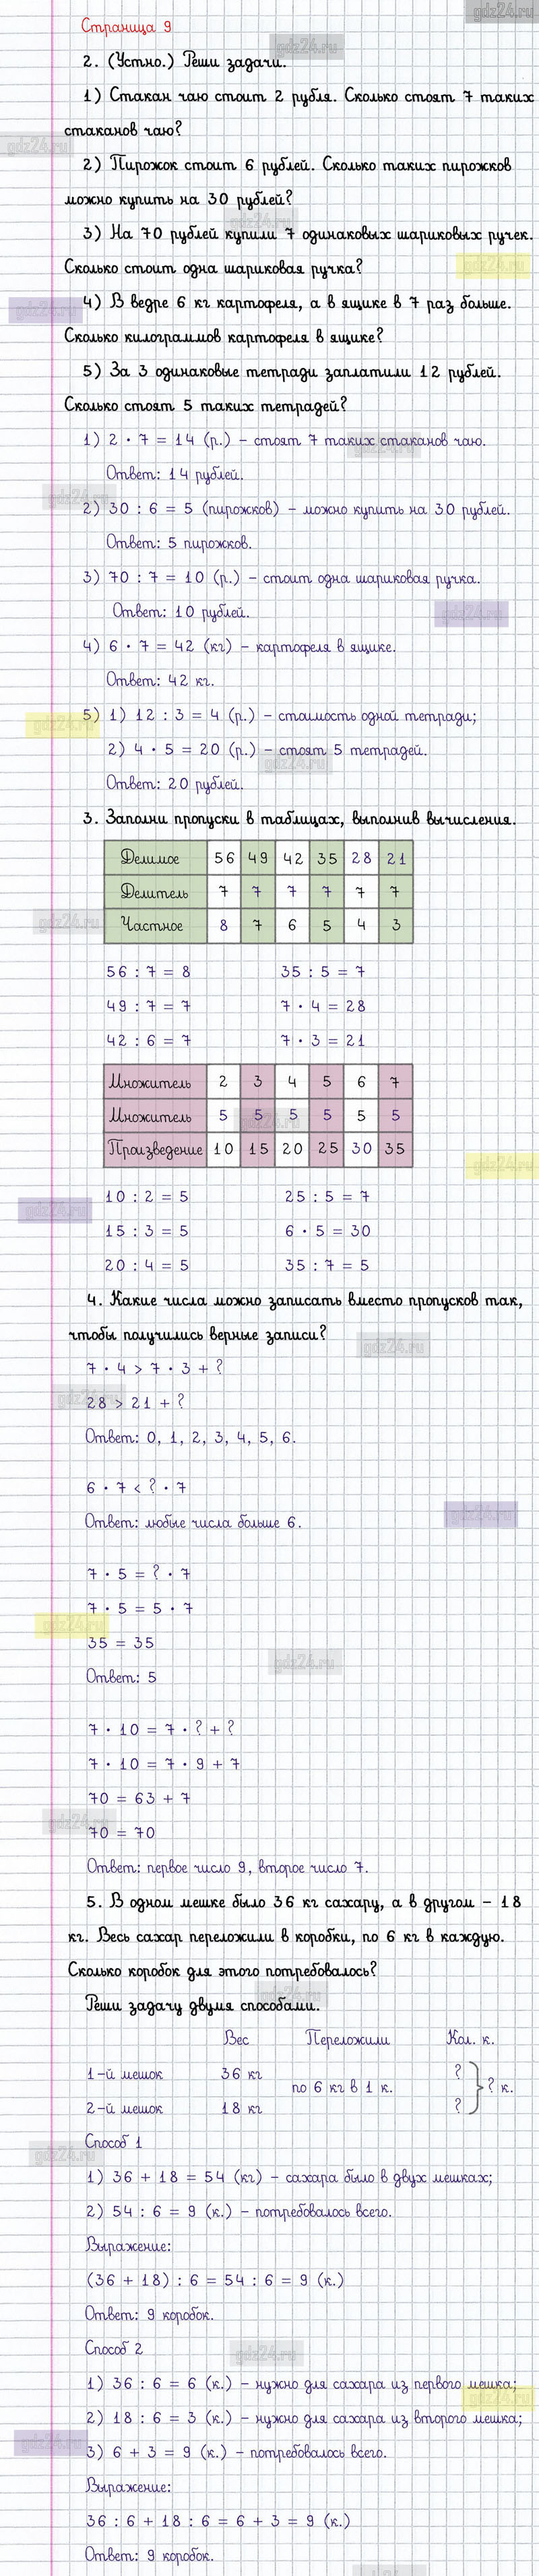 gdz24.ru
Страница 9
gdz24.ru
2. (Устно.) Реши задачи.
1) Стакан чаю стоит 2 рубля. Сколько стоят 7 таких
стаканов чаю?
gdz24.ru
2) Пирожок стоит 6 рублей. Сколько таких пирожков
можно купить на 30 рублей?
gdz24.ru
3) На 70 рублей купили 7 одинаковых шариковых ручек.
Сколько стоит одна шариковая ручка?
gdz24.ru
4) В ведре 6 кг картофеля, а в ящике в 7 раз больше.
gdz24.ru
Сколько килограммов картофеля в ящике?
5) За 3 одинаковые тетради заплатили 12 рублей.
Сколько стоят 5 таких тетрадей?
1) 2 · 7 = 14 (р.) – стоят 7 таких стаканов чаю.
gdz24.ru
Ответ: 14 рублей.
gdz24.ru
2) 30 : 6 = 5 (пирожков) – можно купить на 30 рублей.
Ответ: 5 пирожков.
3) 70 : 7 = 10 (р.) – стоит одна шариковая ручка.
Ответ: 10 рублей.
gdz24.ru
4) 6 · 7 = 42 (кг) – картофеля в ящике.
Ответ: 42 кг.
5) 1) 12 : 3 = 4 (р.) – стоимость одной тетради;
gdz24.ru
2) 4 · 5 = 20 (р.) – стоят 5 тетрадей.
gdz24.ru
Ответ: 20 рублей.
3. Заполни пропуски в таблицах, выполнив вычисления.
Делимое 56 49 42 35 28 21
Делитель 7 7 7 7 7 7
Частное 8 7 6 5 4 3
gdz24.ru
56 : 7 = 8 35 : 5 = 7
49 : 7 = 7 7 · 4 = 28
42 : 6 = 7 7 · 3 = 21
Множитель 2 3 4 5 6 7
Множитель 5 5 5 5 5 5
gdz24.ru
Произведение 10 15 20 25 30 35
gdz24.ru
10 : 2 = 5 25 : 5 = 7
gdz24.ru
15 : 3 = 5 6 · 5 = 30
20 : 4 = 5 35 : 7 = 5
4. Какие числа можно записать вместо пропусков так,
чтобы получились верные записи?
gdz24.ru
7 · 4 > 7 · 3 + ?
28 > 21 + ?
gdz24.ru
Ответ: 0, 1, 2, 3, 4, 5, 6.
6 · 7 < ? · 7
gdz24.ru
Ответ: любые числа больше 6.
7 · 5 = ? · 7
7 · 5 = 5 · 7
gdz24.ru
35 = 35
gdz24.ru
Ответ: 5
7 · 10 = 7 · ? + ?
7 · 10 = 7 · 9 + 7
70 = 63 + 7
gdz24.ru
70 = 70
Ответ: первое число 9, второе число 7.
5. В одном мешке было 36 кг сахару, а в другом – 18
кг. Весь сахар переложили в коробки, по 6 кг в каждую.
Сколько коробок для этого потребовалось?
gdz24.ru
Реши задачу двумя способами.
Вес Переложили Кол. к.
1-й мешок 36 кг ?
по 6 кг в 1 к. ? к.
2-й мешок 18 кг ?
Способ 1
gdz24.ru
1) 36 + 18 = 54 (кг) – сахара было в двух мешках;
2) 54 : 6 = 9 (к.) – потребовалось всего.
Выражение:
(36 + 18) : 6 = 54 : 6 = 9 (к.)
Ответ: 9 коробок.
Способ 2
gdz24.ru
1) 36 : 6 = 6 (к.) – нужно для сахара из первого мешка;
gdz24.ru
2) 18 : 6 = 3 (к.) – нужно для сахара из второго мешка;
gdz24.ru
3) 6 + 3 = 9 (к.) – потребовалось всего.
Выражение:
36 : 6 + 18 : 6 = 6 + 3 = 9 (к.)
Ответ: 9 коробок.
gdz24.ru